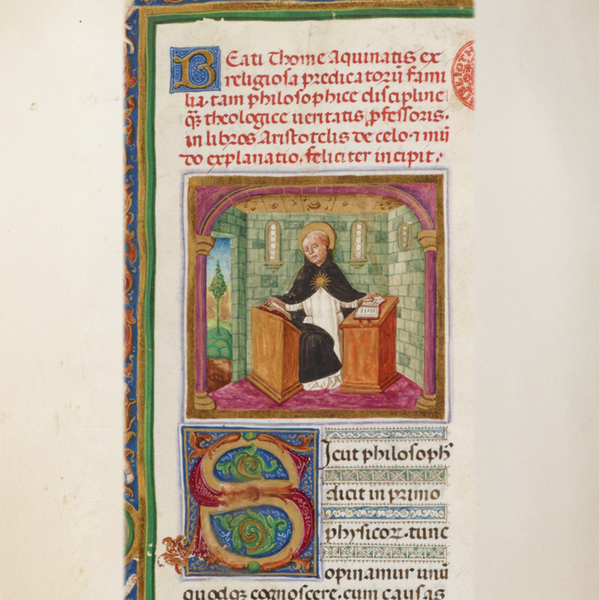 BEati Thome Aquinatis ex
religiosa predicatorũ fami
lia tam philosophice discipline
q̃ꝫ theologice ueritatis ꝓfessoris.
in libros Aristotelis de celo ⁊ mũ
do explanatio. feliciter incipit.
Sicut philosoph⁹
dicit in primo
physicoꝝ. tunc
opinamur unũ
quodqꝫ cognoscere. cum causas